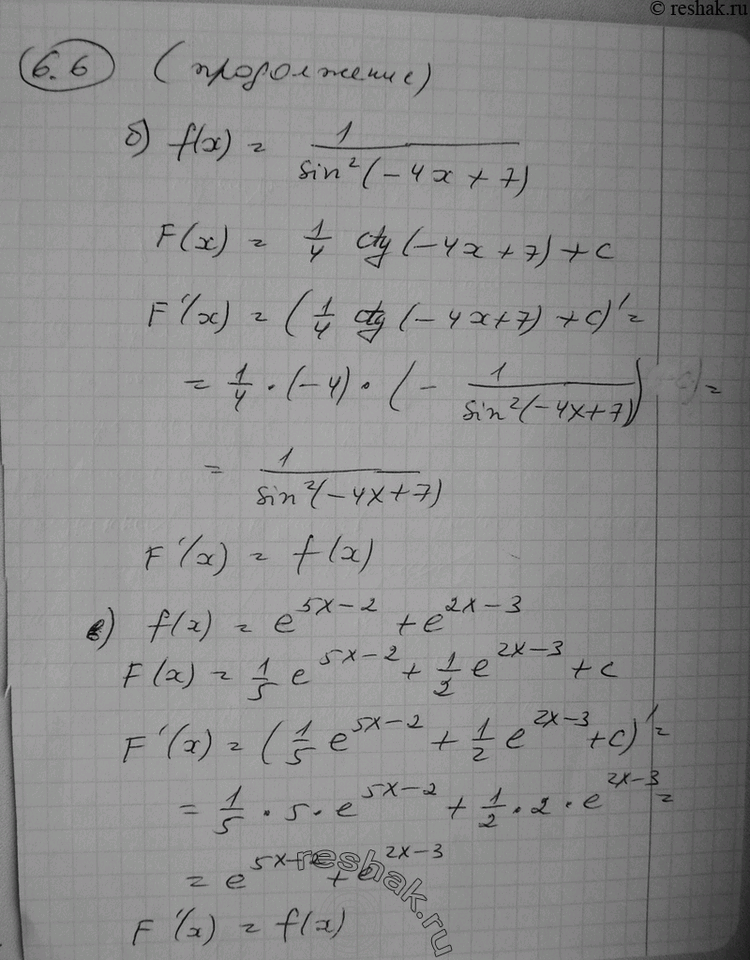 © reshak.ru
6.6 (продолжение)
б) f(x) = 1/sin²(-4x+7)
F(x) = 1/4 ctg(-4x+7)+c
F'(x) = (1/4 ctg(-4x+7)+c)' =
= 1/4 · (-4) · (- 1/sin²(-4x+7)) =
= 1/sin²(-4x+7)
F'(x) = f(x)
в) f(x) = e^(5x-2) + e^(2x-3)
F(x) = 1/5 e^(5x-2) + 1/2 e^(2x-3) + c
F'(x) = (1/5 e^(5x-2) + 1/2 e^(2x-3) + c)' =
= 1/5 · 5 · e^(5x-2) + 1/2 · 2 · e^(2x-3) =
= e^(5x-2) + e^(2x-3)
reshak.ru
F'(x) = f(x)